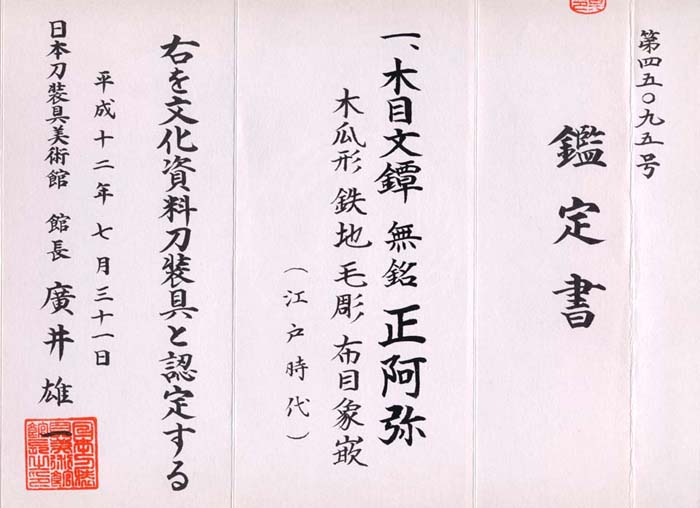 第四五〇九五号
鑑定書
一、木目文鐔 無銘 正阿弥
木瓜形 鉄地 毛彫 布目象嵌
（江戸時代）
右を文化資料刀装具と認定する
平成十二年七月三十一日
日本刀装具美術館 館長 廣井雄一